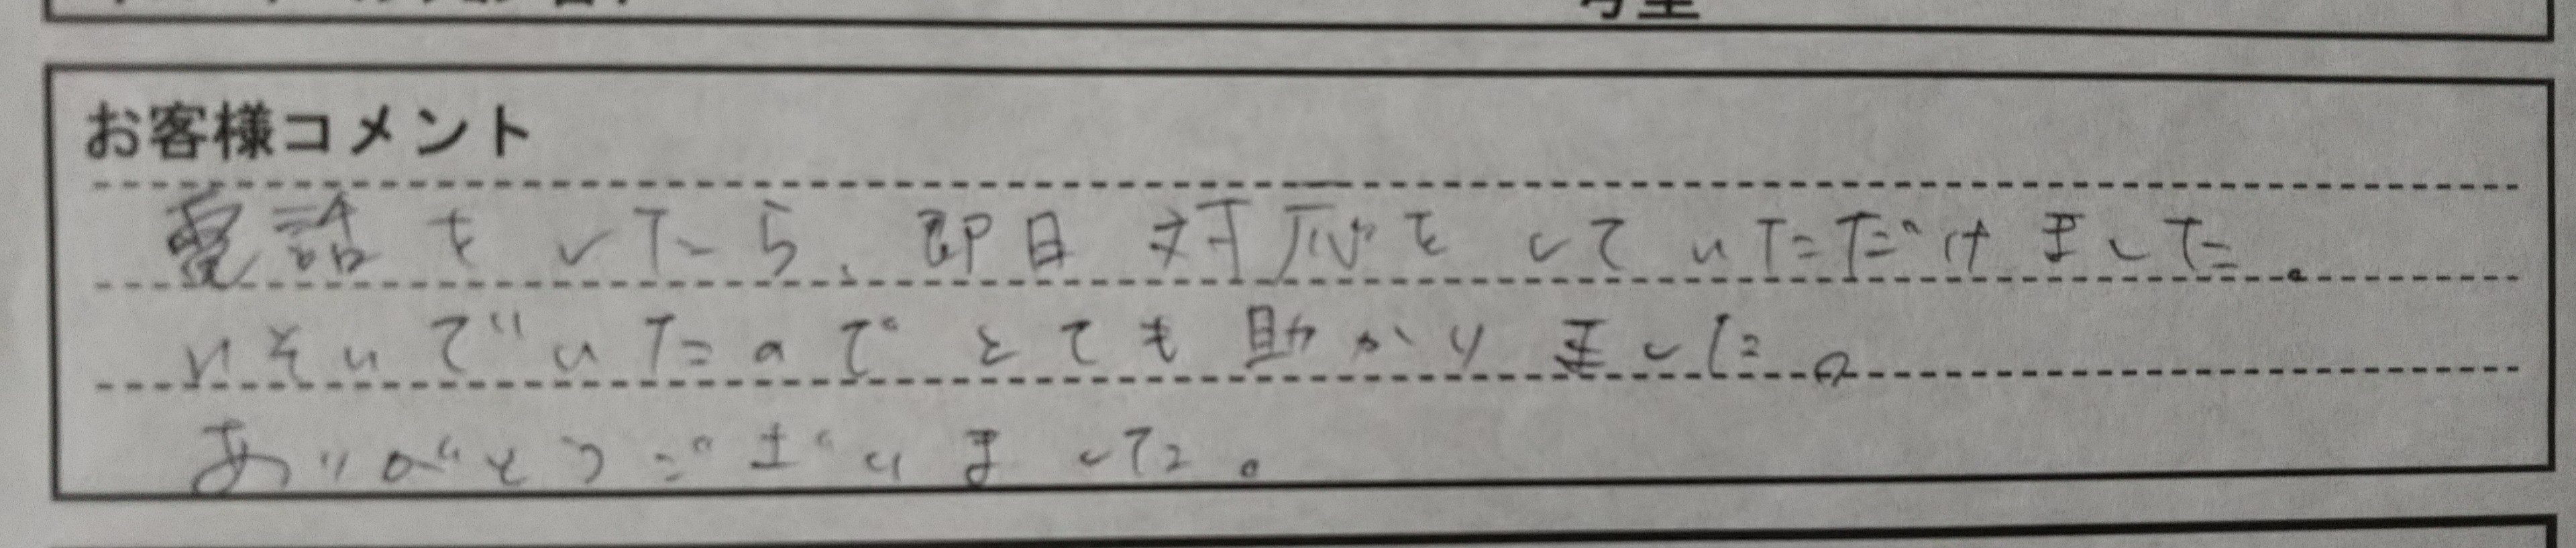 お客様コメント
電話をしたら、即日対応をしていただけました。
いそいでいたのでとても助かりました。
ありがとうございました。